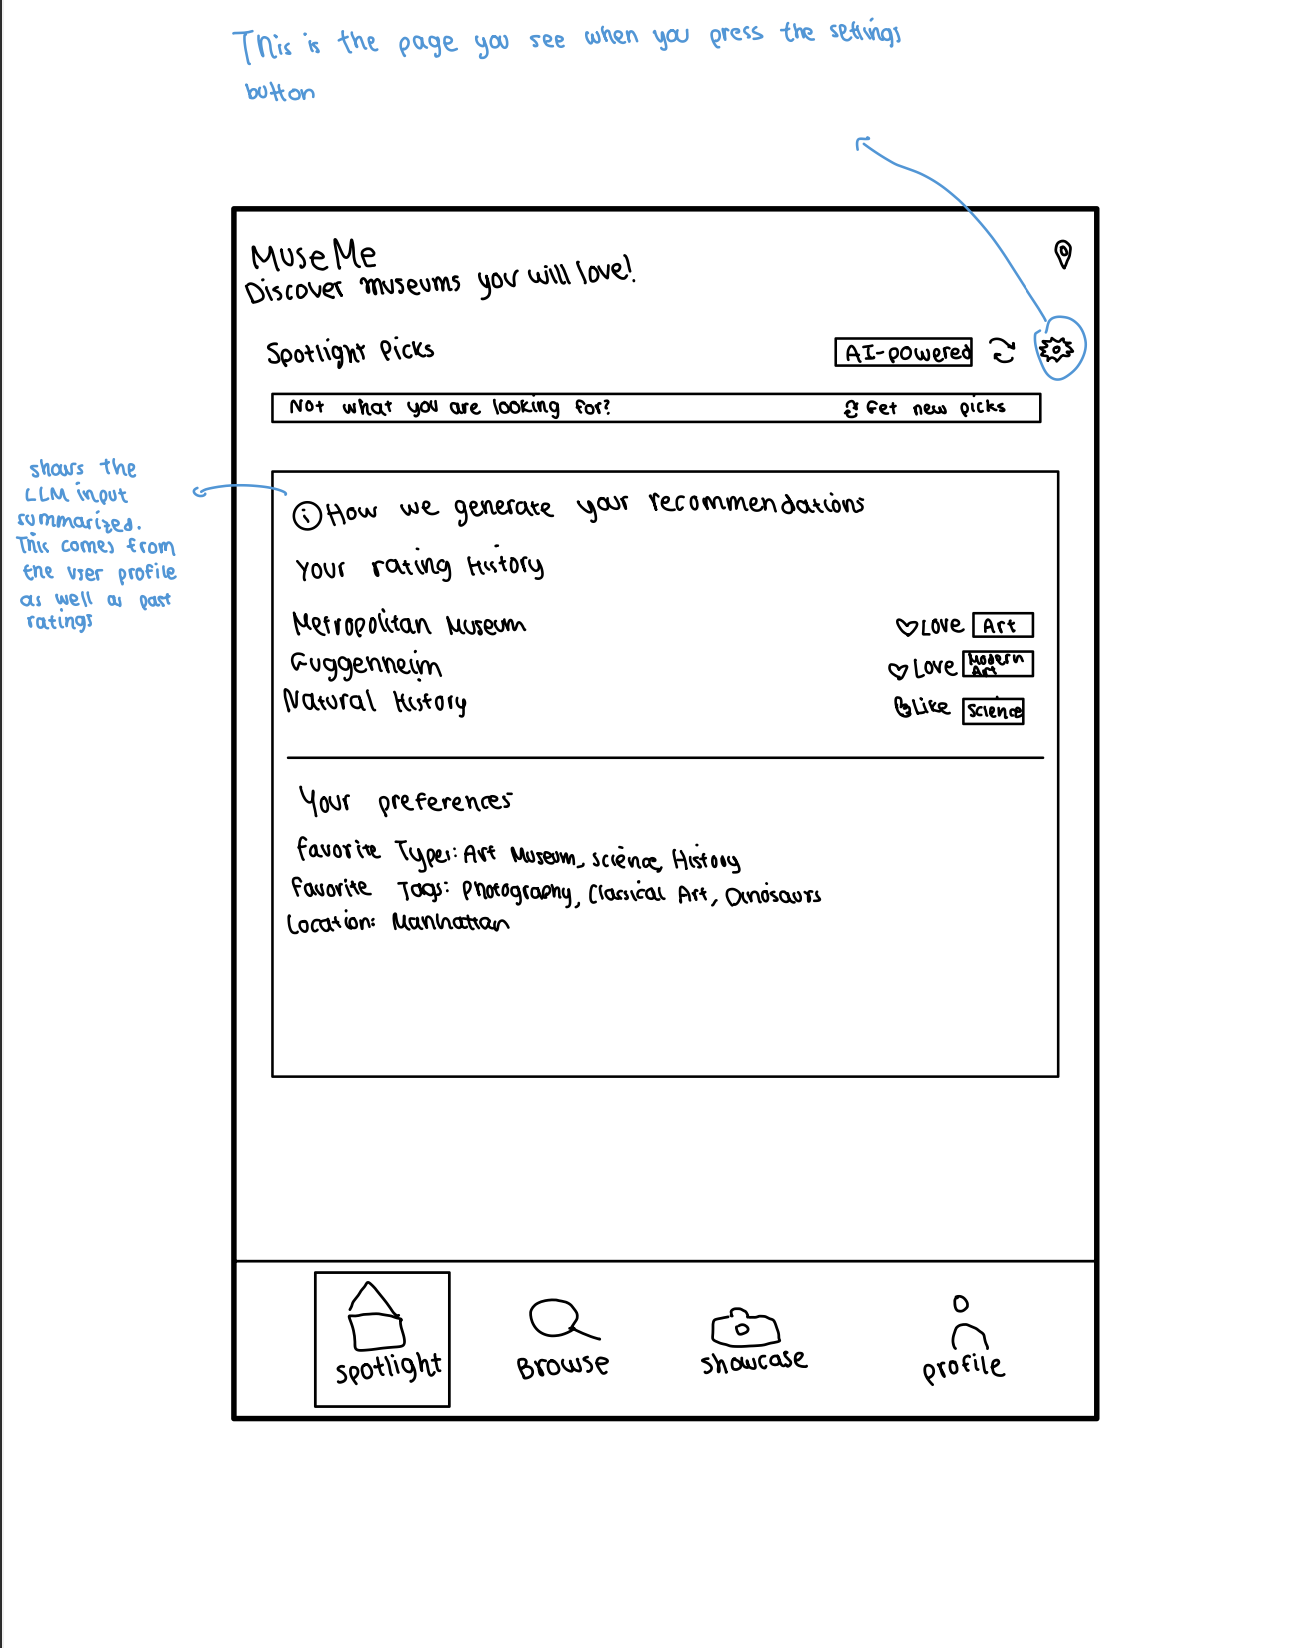 This is the page you see when you press the settings
button
MuseMe
Discover museums you will love!
Spotlight Picks
AI-powered
Not what you are looking for?
Get new picks
shows the
LLM input
summarized.
This comes from
the user profile
as well as past
ratings
How we generate your recommendations
Your rating History
Metropolitan Museum
Love
Art
Guggenheim
Love
Modern
Art
Natural History
Like
Science
Your preferences
Favorite Types: Art Museum, Science, History
Favorite Tags: Photography, Classical Art, Dinosaurs
Location: Manhattan
Spotlight
Browse
Showcase
profile